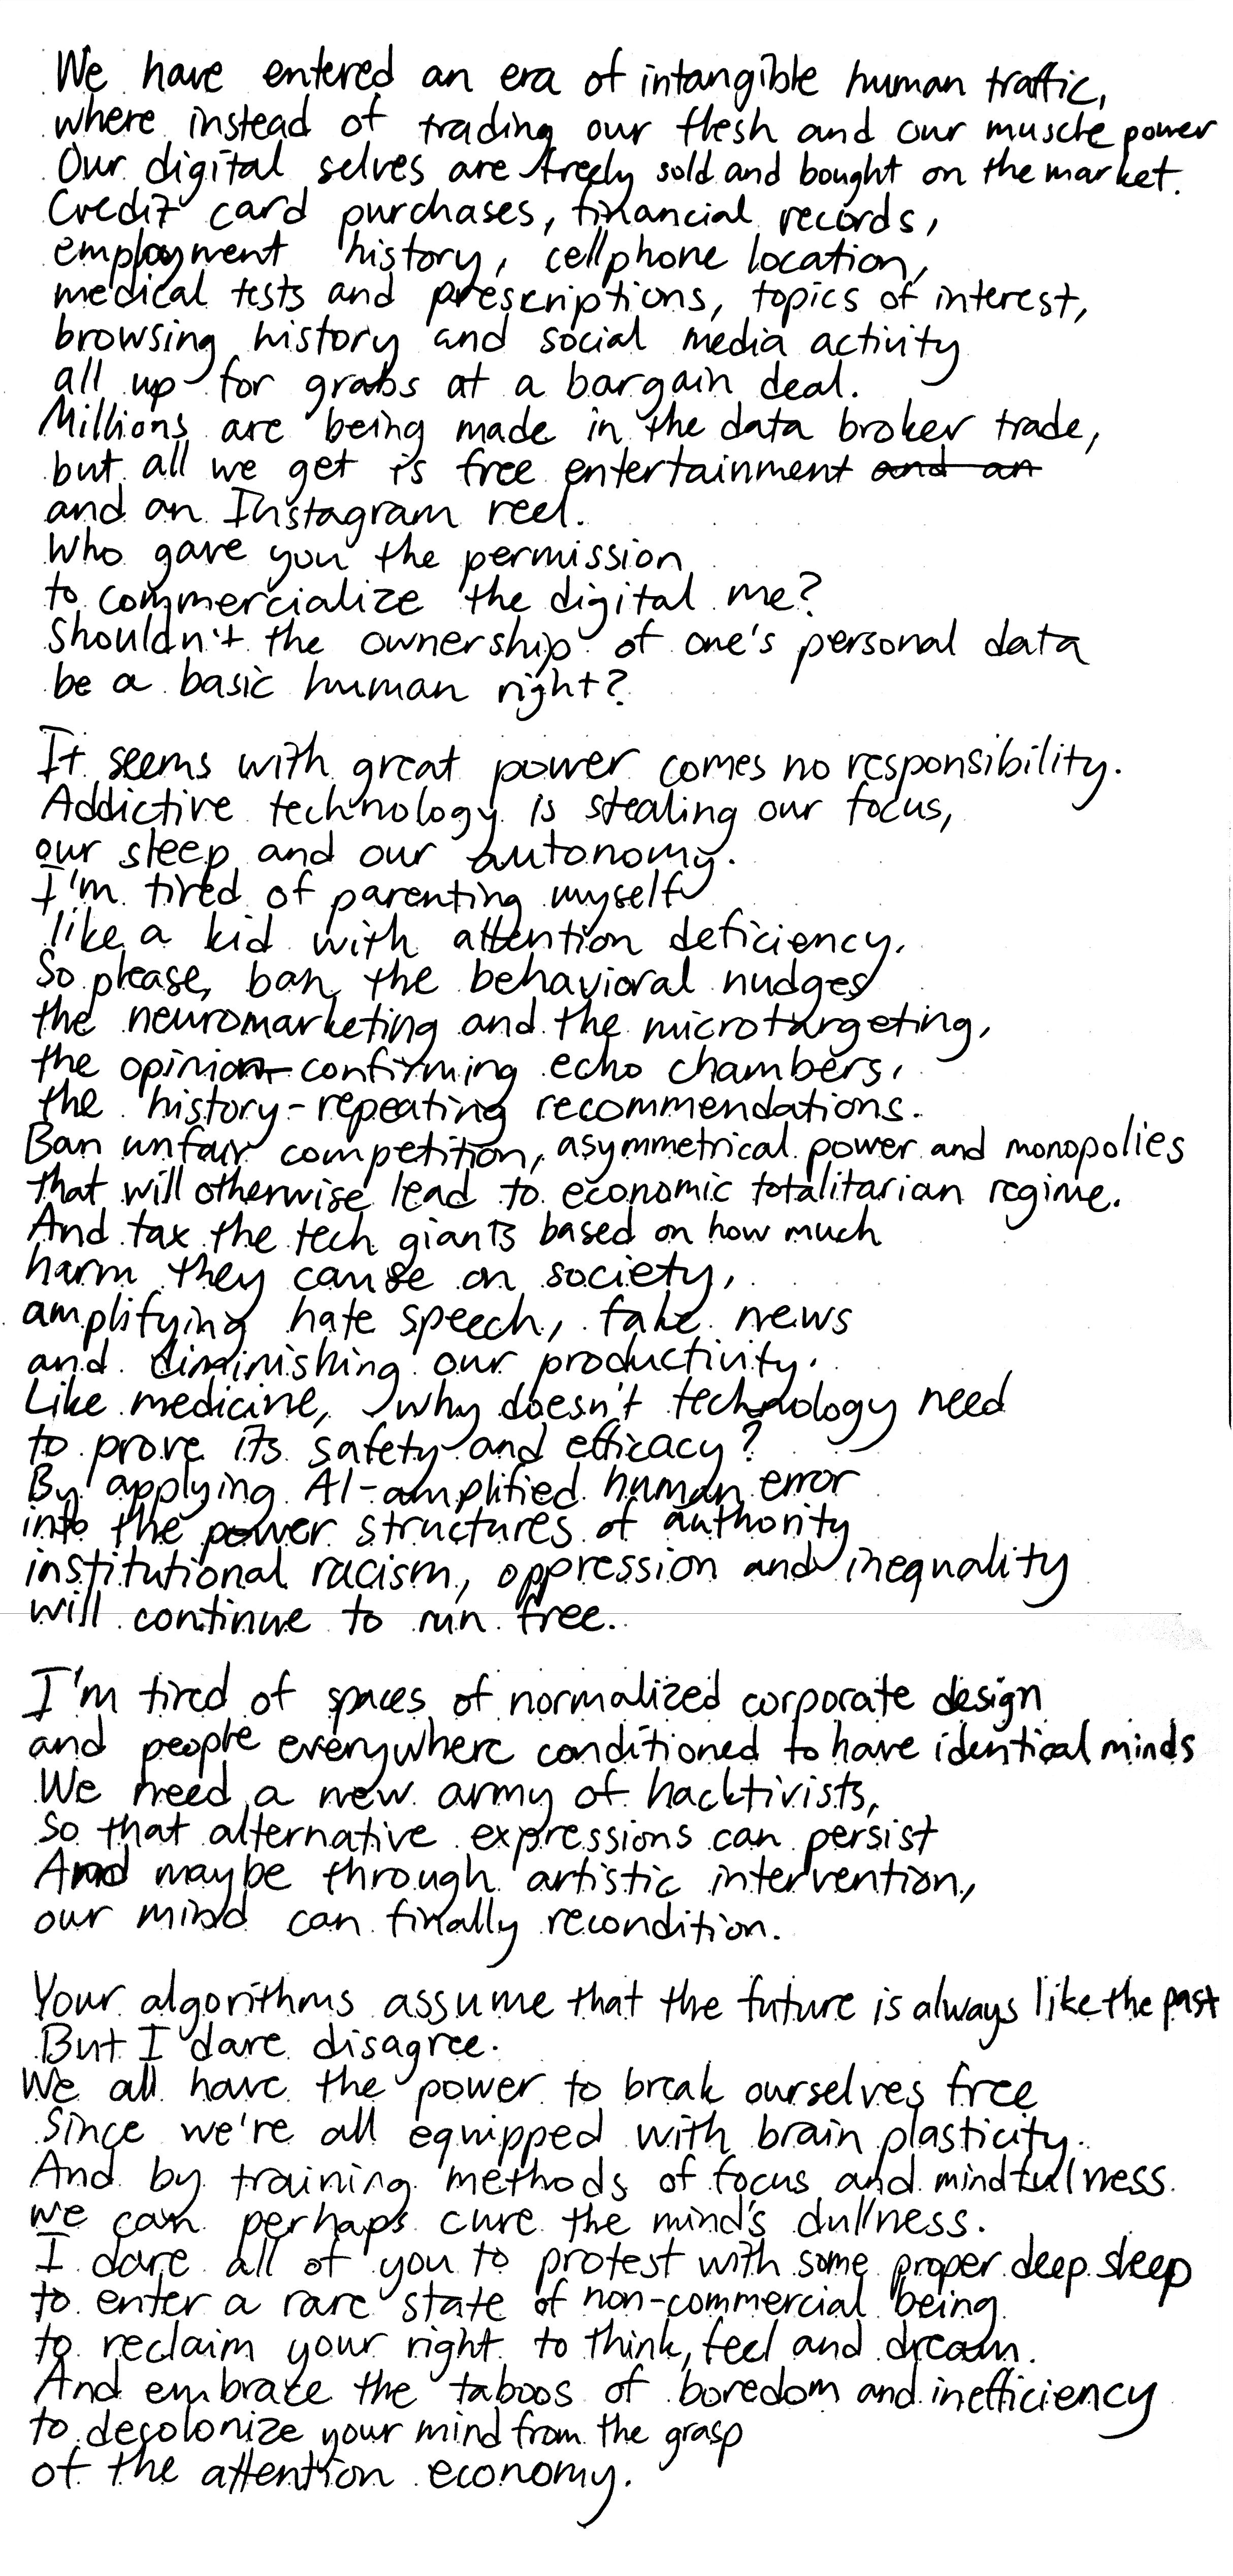 We have entered an era of intangible human traffic,
where instead of trading our flesh and our muscle power
Our digital selves are freely sold and bought on the market.
Credit card purchases, financial records,
employment history, cellphone location,
medical tests and prescriptions, topics of interest,
browsing history and social media activity
all up for grabs at a bargain deal.
Millions are being made in the data broker trade,
but all we get is free entertainment and an
and an Instagram reel.
Who gave you the permission
to commercialize the digital me?
Shouldn't the ownership of one's personal data
be a basic human right?
It seems with great power comes no responsibility.
Addictive technology is stealing our focus,
our sleep and our autonomy.
I'm tired of parenting myself
like a kid with attention deficiency.
So please, ban the behavioral nudges
the neuromarketing and the microtargeting,
the opinion-confirming echo chambers,
the history-repeating recommendations.
Ban unfair competition, asymmetrical power and monopolies
that will otherwise lead to economic totalitarian regime.
And tax the tech giants based on how much
harm they cause on society,
amplifying hate speech, fake news
and diminishing our productivity.
Like medicine, why doesn't technology need
to prove its safety and efficacy?
By applying AI-amplified human error
into the power structures of authority
institutional racism, oppression and inequality
will continue to run free.
I'm tired of spaces of normalized corporate design
and people everywhere conditioned to have identical minds
We need a new army of hacktivists,
So that alternative expressions can persist
And maybe through artistic intervention,
our mind can finally recondition.
Your algorithms assume that the future is always like the past
But I dare disagree.
We all have the power to break ourselves free
Since we're all equipped with brain plasticity.
And by training methods of focus and mindfulness
we can perhaps cure the mind's dullness.
I dare all of you to protest with some proper deep sleep
to enter a rare state of non-commercial being
to reclaim your right to think, feel and dream.
And embrace the taboos of boredom and inefficiency
to decolonize your mind from the grasp
of the attention economy.